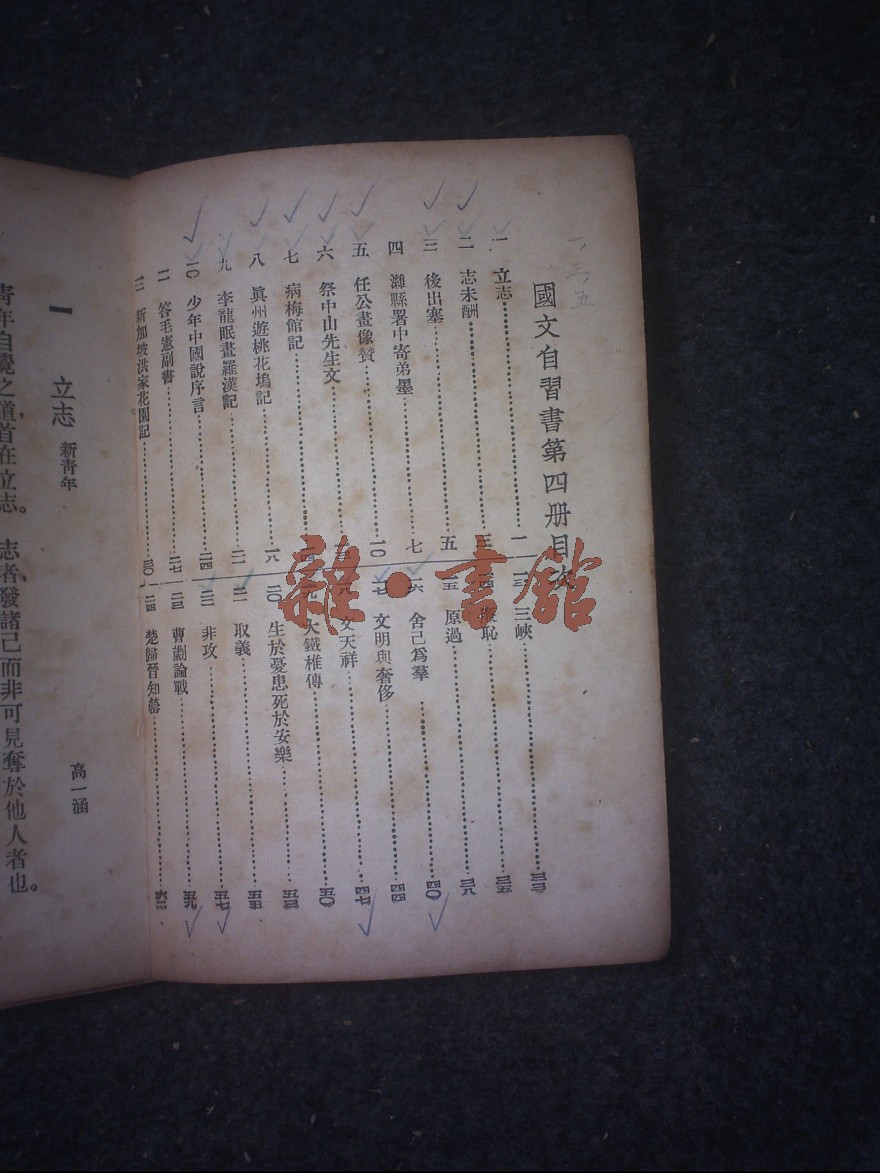 國文自習書第四册目次
一 立志 一
二 志未酬 三
三 後出塞 五
四 濰縣署中寄弟墨 七
五 任公畫像贊 一〇
六 祭中山先生文
七 病梅館記 一四
八 眞州遊桃花塢記 一八
九 李龍眠畫羅漢記 二一
一〇 少年中國說序言 二四
一一 答毛憲副書 二七
一二 新加坡洪家花園記 三〇
一三 三峽 三三
一四 恥 三五
一五 原過 三八
一六 舍己爲羣 四〇
一七 文明與奢侈 四四
一八 文天祥 四七
一九 大鐵椎傳 五〇
二〇 生於憂患死於安樂 五三
二一 取義 五五
二二 非攻 五七
二三 曹劌論戰 五九
二四 楚歸晉知罃 六二
雜·書館
一 立志 新青年 高一涵
青年自覺之道，首在立志。志者，發諸己而非可見奪於他人者也。